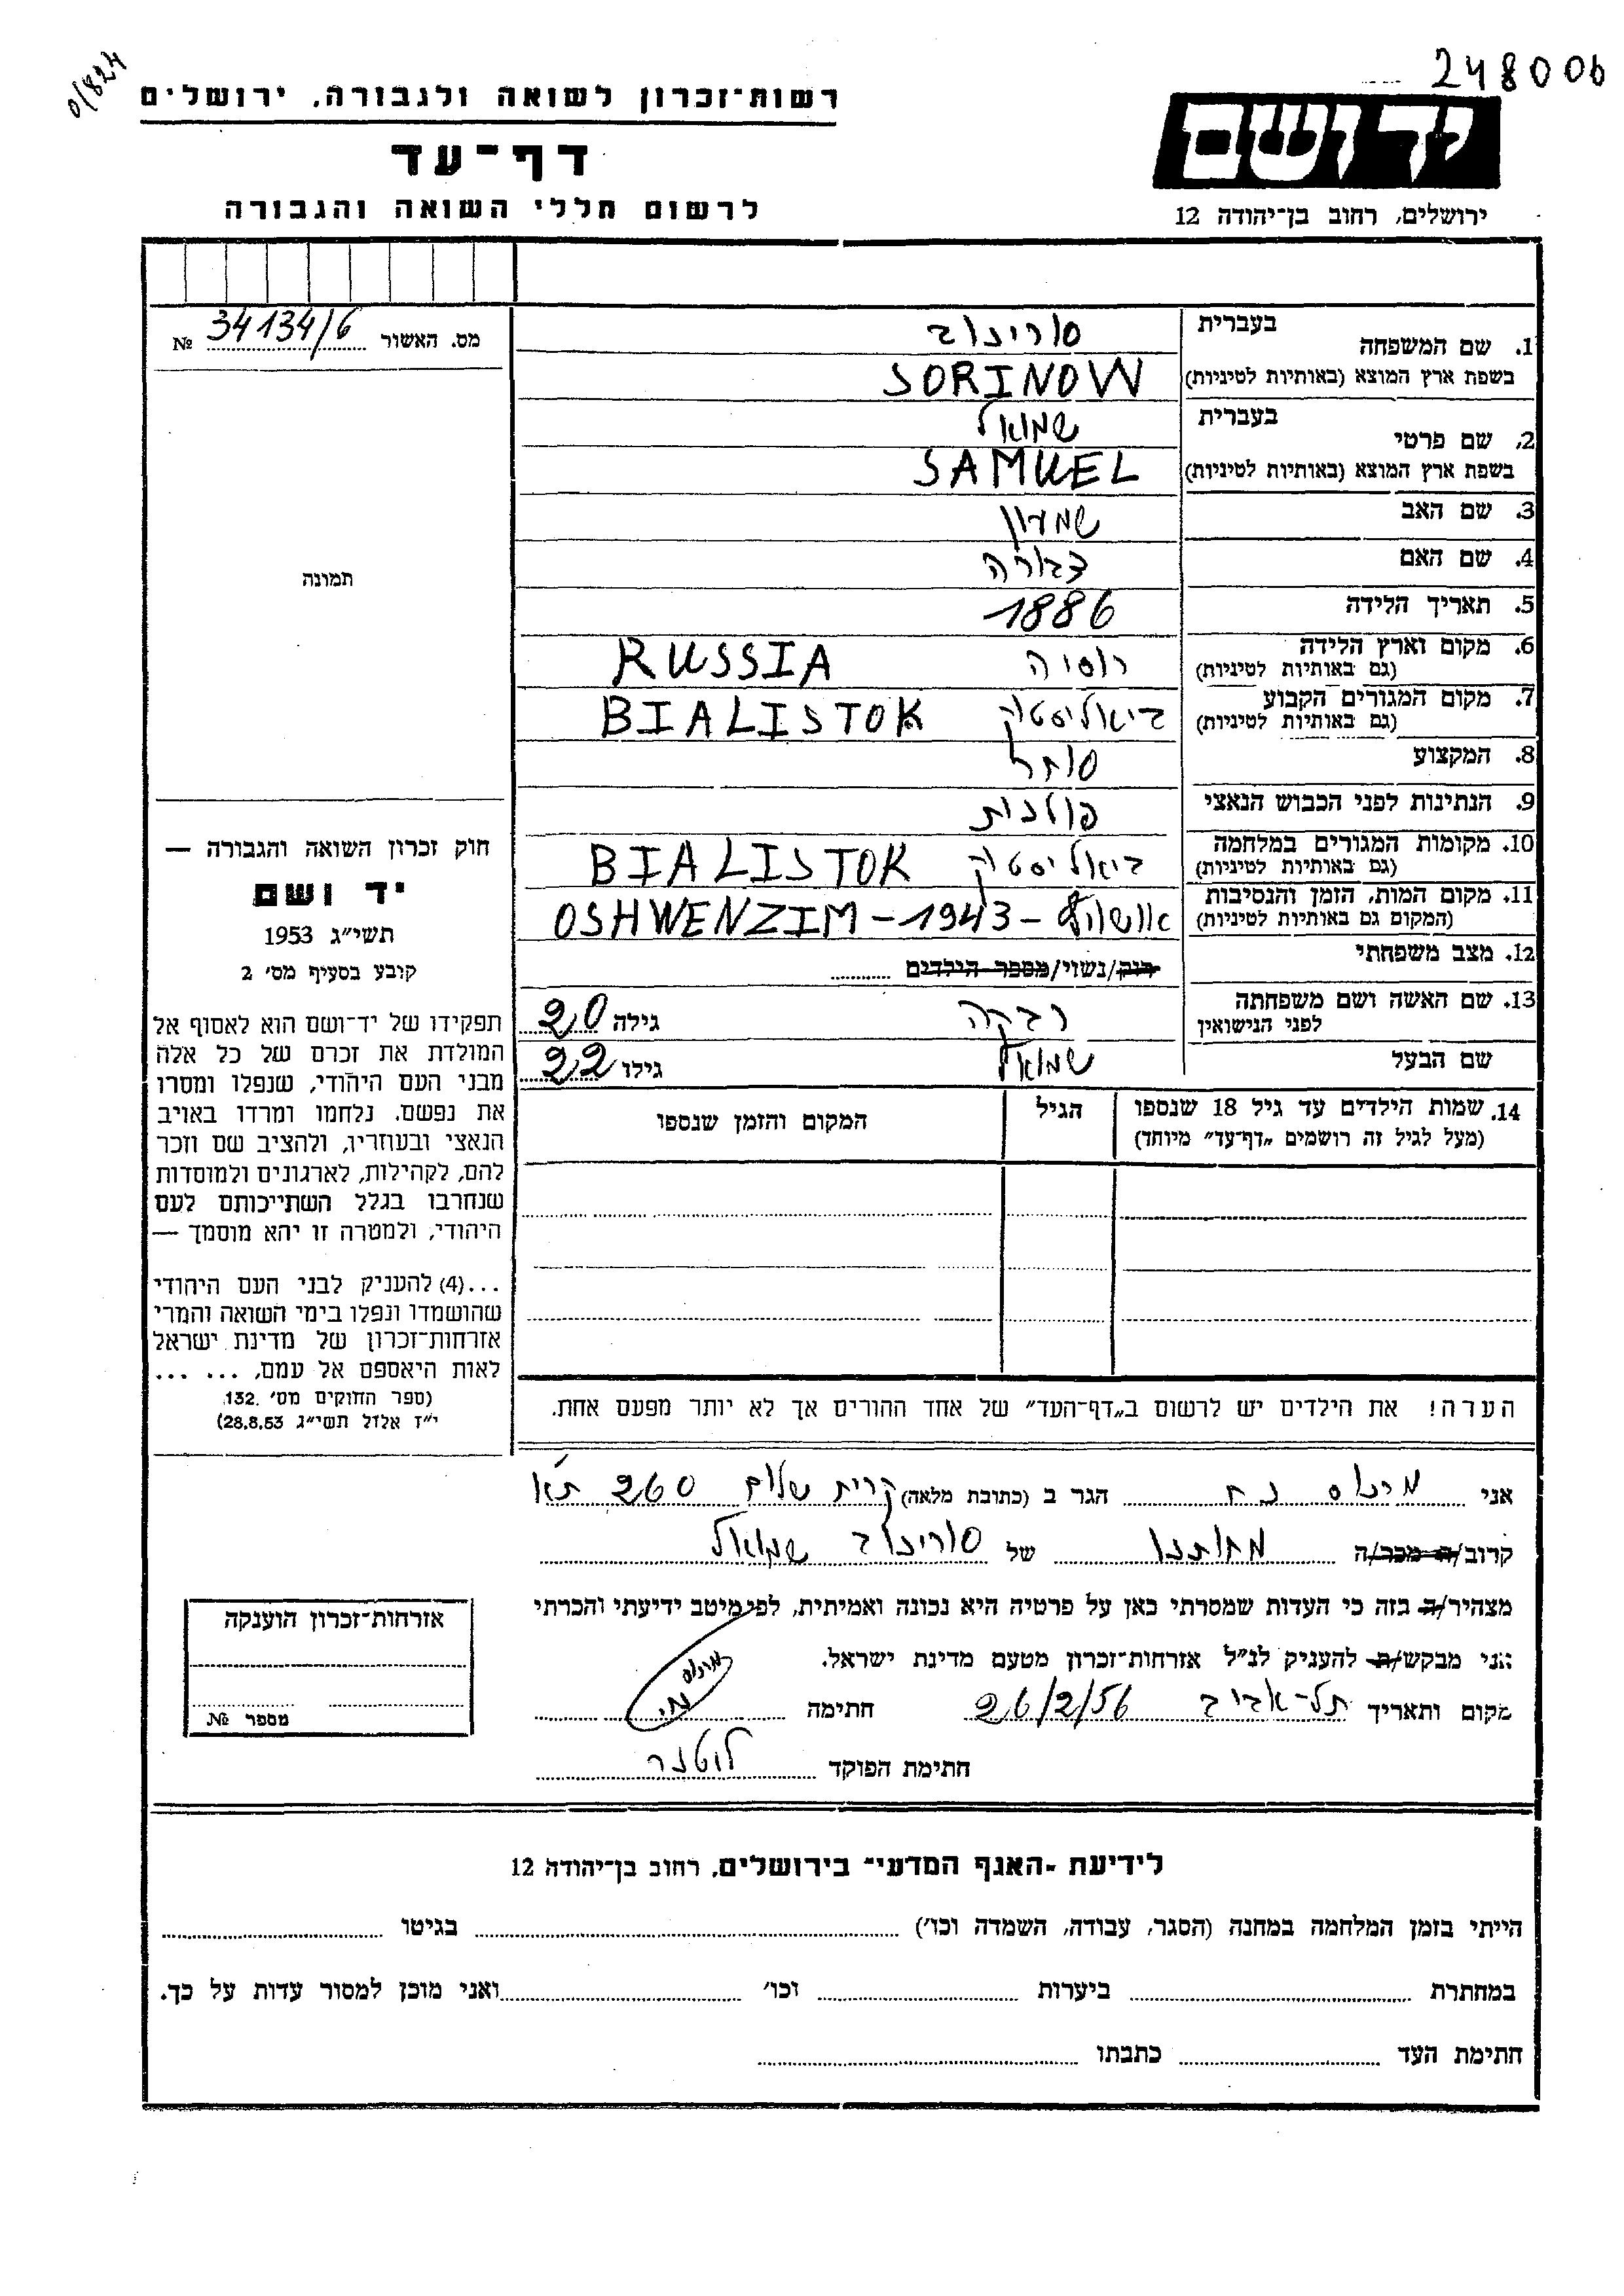 248006
0/824
רשות־זכרון לשואה ולגבורה, ירושלים
דף־עד
לרשום חללי השואה והגבורה
יד ושם
ירושלים, רחוב בן־יהודה 12
מס. האשור 34134/6 №
תמונה
חוק זכרון השואה והגבורה —
יד ושם
תשי״ג 1953
קובע בסעיף מס׳ 2
תפקידו של יד־ושם הוא לאסוף אל
המולדת את זכרם של כל אלה
מבני העם היהודי, שנפלו ומסרו
את נפשם, נלחמו ומרדו באויב
הנאצי ובעוזריו, ולהציב שם וזכר
להם, לקהילות, לארגונים ולמוסדות
שנחרבו בגלל השתייכותם לעם
היהודי, ולמטרה זו יהא מוסמך —
...(4) להעניק לבני העם היהודי
שהושמדו ונפלו בימי השואה והמרי
אזרחות־זכרון של מדינת ישראל
לאות היאספם אל עמם, ... ...
(ספר החוקים מס׳ 132,
י״ז אלול תשי״ג 28.8.53)
בעברית סורינוב
1. שם המשפחה
בשפת ארץ המוצא (באותיות לטיניות) SORINOW
בעברית שמואל
2. שם פרטי
בשפת ארץ המוצא (באותיות לטיניות) SAMUEL
3. שם האב שמעון
4. שם האם דבורה
5. תאריך הלידה 1886
6. מקום וארץ הלידה רוסיה RUSSIA
(גם באותיות לטיניות)
7. מקום המגורים הקבוע ביאליסטוק BIALISTOK
(גם באותיות לטיניות)
8. המקצוע סוחר
9. הנתינות לפני הכבוש הנאצי פולנית
10. מקומות המגורים במלחמה ביאליסטוק BIALISTOK
(גם באותיות לטיניות)
11. מקום המות, הזמן והנסיבות OSHWENZIM – 1943 –
(המקום גם באותיות לטיניות)
12. מצב משפחתי רוק/נשוי/מספר הילדים
13. שם האשה ושם משפחתה רבקה גילה 20
לפני הנישואין
שם הבעל שמואל גילו 22
14. שמות הילדים עד גיל 18 שנספו הגיל המקום והזמן שנספו
(מעל לגיל זה רושמים „דף־עד״ מיוחד)
הערה! את הילדים יש לרשום ב„דף־העד״ של אחד ההורים אך לא יותר מפעם אחת.
אני מינוס נח הגר ב (כתובת מלאה) קרית שלום 260 ת״א
קרוב/ה מכר/ה מחותנו של סורינוב שמואל
מצהיר/ה בזה כי העדות שמסרתי כאן על פרטיה היא נכונה ואמיתית, לפי מיטב ידיעתי והכרתי
אני מבקש/ת להעניק לנ״ל אזרחות־זכרון מטעם מדינת ישראל.
מקום ותאריך תל-אביב 26/2/56 חתימה מינוס נח
חתימת הפוקד לוטנר
אזרחות־זכרון הוענקה
מספר №
לידיעת „האגף המדעי״ בירושלים, רחוב בן־יהודה 12
הייתי בזמן המלחמה במחנה (הסגר, עבודה, השמדה וכו׳) בגיטו
במחתרת ביערות וכו׳ ואני מוכן למסור עדות על כך.
חתימת העד כתבתו